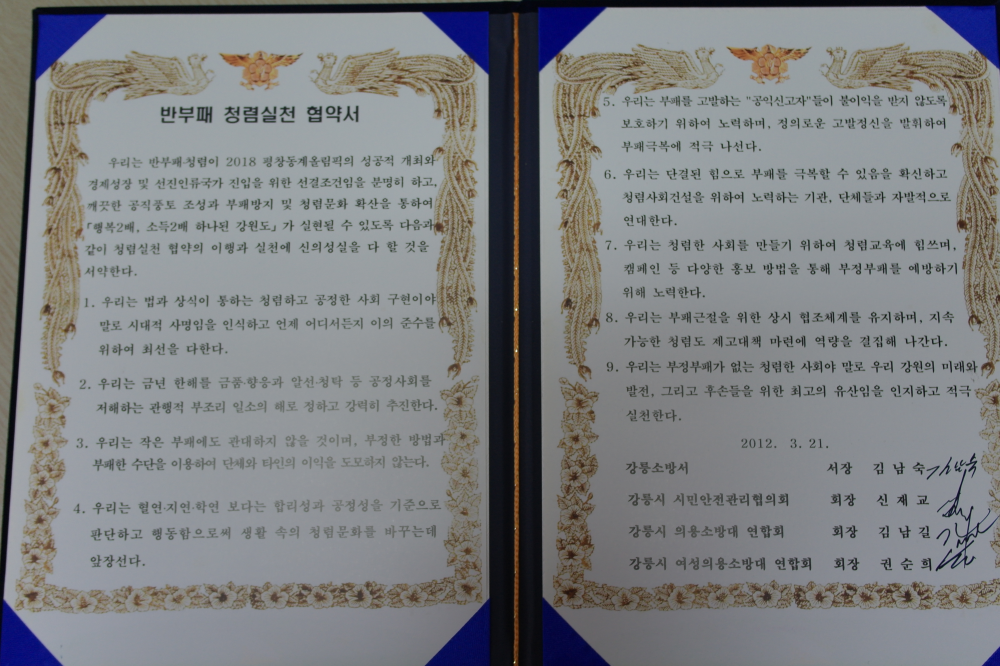 반부패 청렴실천 협약서
우리는 반부패·청렴이 2018 평창동계올림픽의 성공적 개최와
경제성장 및 선진인류국가 진입을 위한 선결조건임을 분명히 하고,
깨끗한 공직풍토 조성과 부패방지 및 청렴문화 확산을 통하여
「행복2배, 소득2배 하나된 강원도」가 실현될 수 있도록 다음과
같이 청렴실천 협약의 이행과 실천에 신의성실을 다 할 것을
서약한다.
1. 우리는 법과 상식이 통하는 청렴하고 공정한 사회 구현이야
말로 시대적 사명임을 인식하고 언제 어디서든지 이의 준수를
위하여 최선을 다한다.
2. 우리는 금년 한해를 금품·향응과 알선·청탁 등 공정사회를
저해하는 관행적 부조리 일소의 해로 정하고 강력히 추진한다.
3. 우리는 작은 부패에도 관대하지 않을 것이며, 부정한 방법과
부패한 수단을 이용하여 단체와 타인의 이익을 도모하지 않는다.
4. 우리는 혈연·지연·학연 보다는 합리성과 공정성을 기준으로
판단하고 행동함으로써 생활 속의 청렴문화를 바꾸는데
앞장선다.
5. 우리는 부패를 고발하는 "공익신고자"들이 불이익을 받지 않도록
보호하기 위하여 노력하며, 정의로운 고발정신을 발휘하여
부패극복에 적극 나선다.
6. 우리는 단결된 힘으로 부패를 극복할 수 있음을 확신하고
청렴사회건설을 위하여 노력하는 기관, 단체들과 자발적으로
연대한다.
7. 우리는 청렴한 사회를 만들기 위하여 청렴교육에 힘쓰며,
캠페인 등 다양한 홍보 방법을 통해 부정부패를 예방하기
위해 노력한다.
8. 우리는 부패근절을 위한 상시 협조체계를 유지하며, 지속
가능한 청렴도 제고대책 마련에 역량을 결집해 나간다.
9. 우리는 부정부패가 없는 청렴한 사회야 말로 우리 강원의 미래와
발전, 그리고 후손들을 위한 최고의 유산임을 인지하고 적극
실천한다.
2012. 3. 21.
강릉소방서 서장 김남숙
강릉시 시민안전관리협의회 회장 신재교
강릉시 의용소방대 연합회 회장 김남길
강릉시 여성의용소방대 연합회 회장 권순희